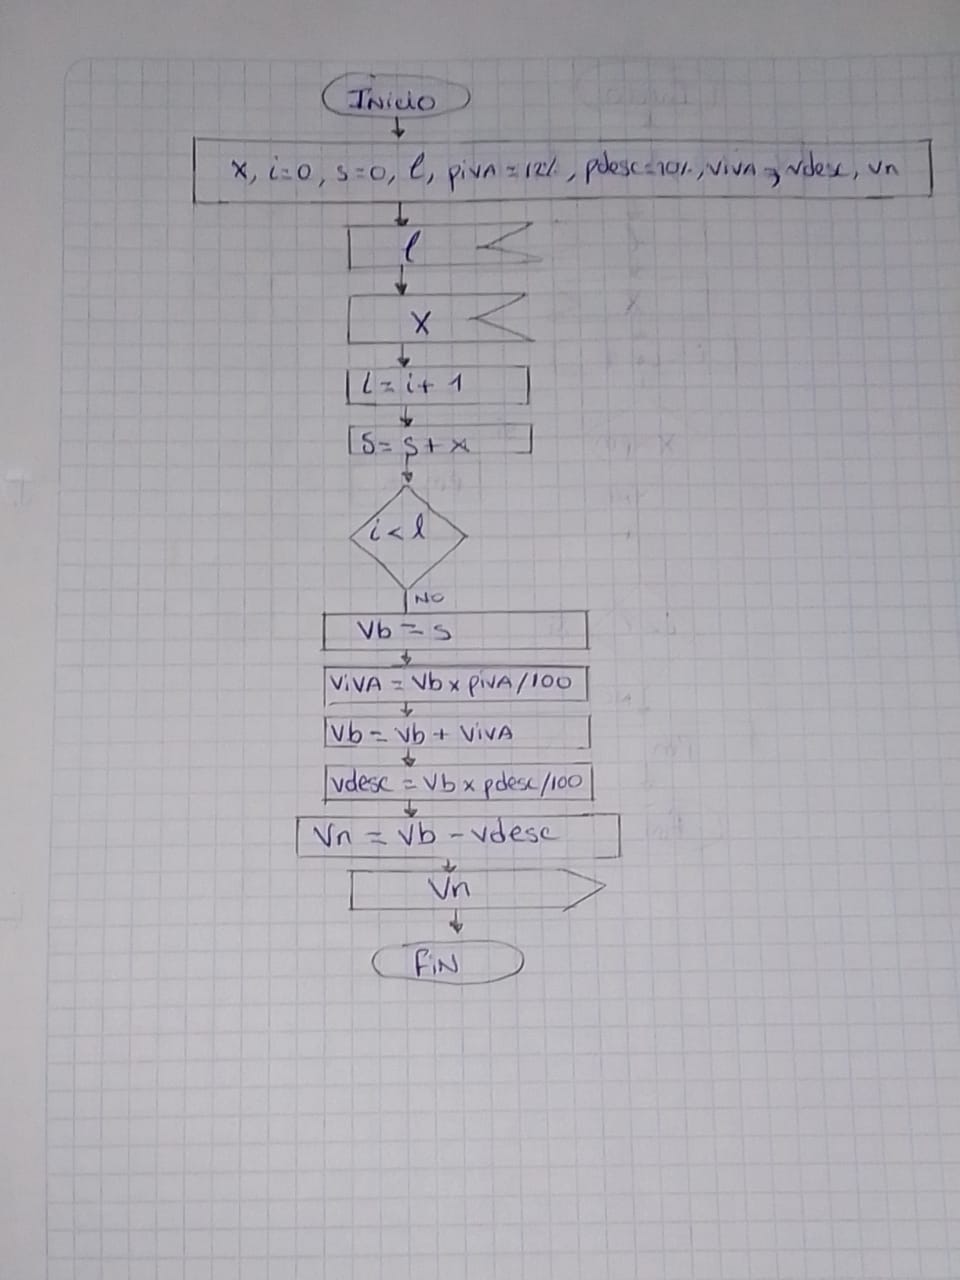 Inicio
x, i=0, s=0, l, piVA=12%, pdesc=10%, viVA, vdesc, vn
l
x
i=i+1
S=S+x
i<l
NO
Vb=s
ViVA=Vb x piVA/100
Vb=Vb+ViVA
Vdesc=Vb x pdesc/100
Vn=Vb-Vdesc
Vn
FiN